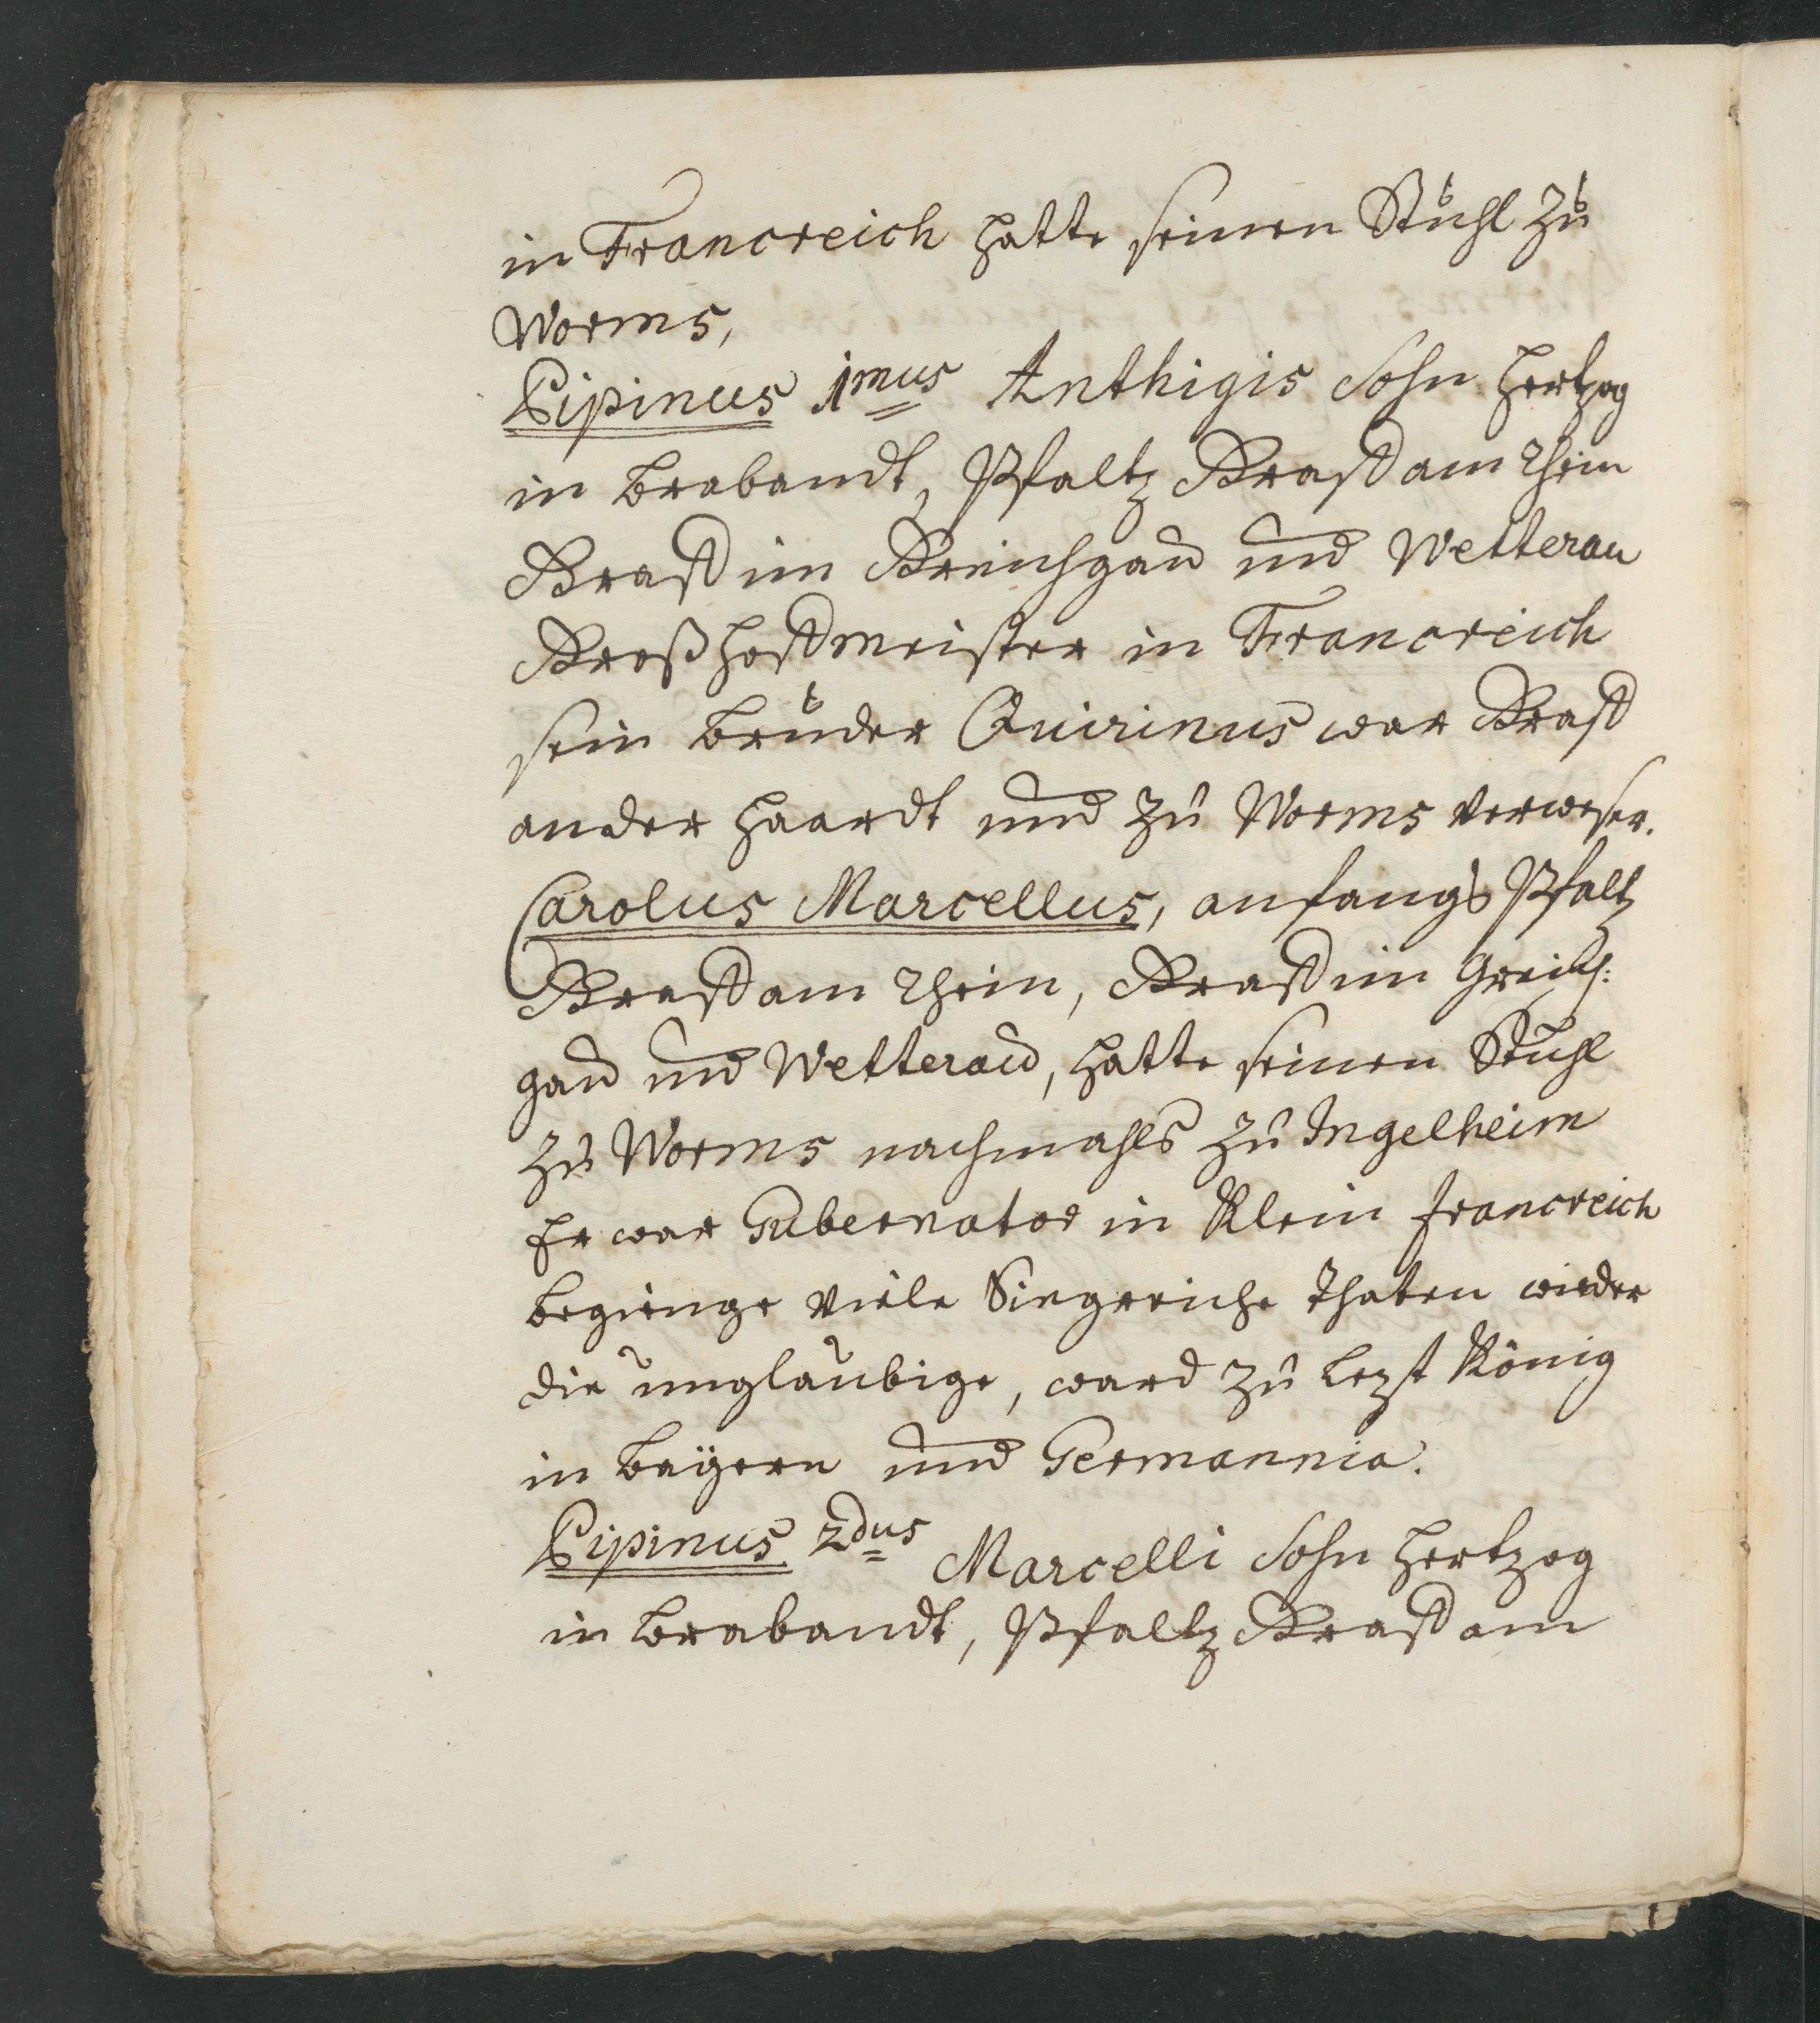 in Francreich hatte seinen Stuhl zu
Worms,
Pipinus 1mus Anthigis Sohn Hertzog
in Brabandt, Pfaltz Graff am Rhein
Graff im Greichgau und Wetterau
Groß hoffmeister in Francreich
sein Bruder Quirinus war Graff
an der Haardt und zu Worms verweser.
Carolus Marcellus, anfangs Pfaltz
Graff am Rhein, Graff im Greich:
gau und Wetterau, hatte seinen Stuhl
zu Worms nachmahls zu Ingelheim
Er war Gubernator in Klein francreich
begienge viele Siegreiche Thaten wieder
die unglaubige, ward zu lezt König
in Bayern und Germannia.
Pipinus 2dus Marcelli Sohn Hertzog
in Brabandt, Pfaltz Graff am